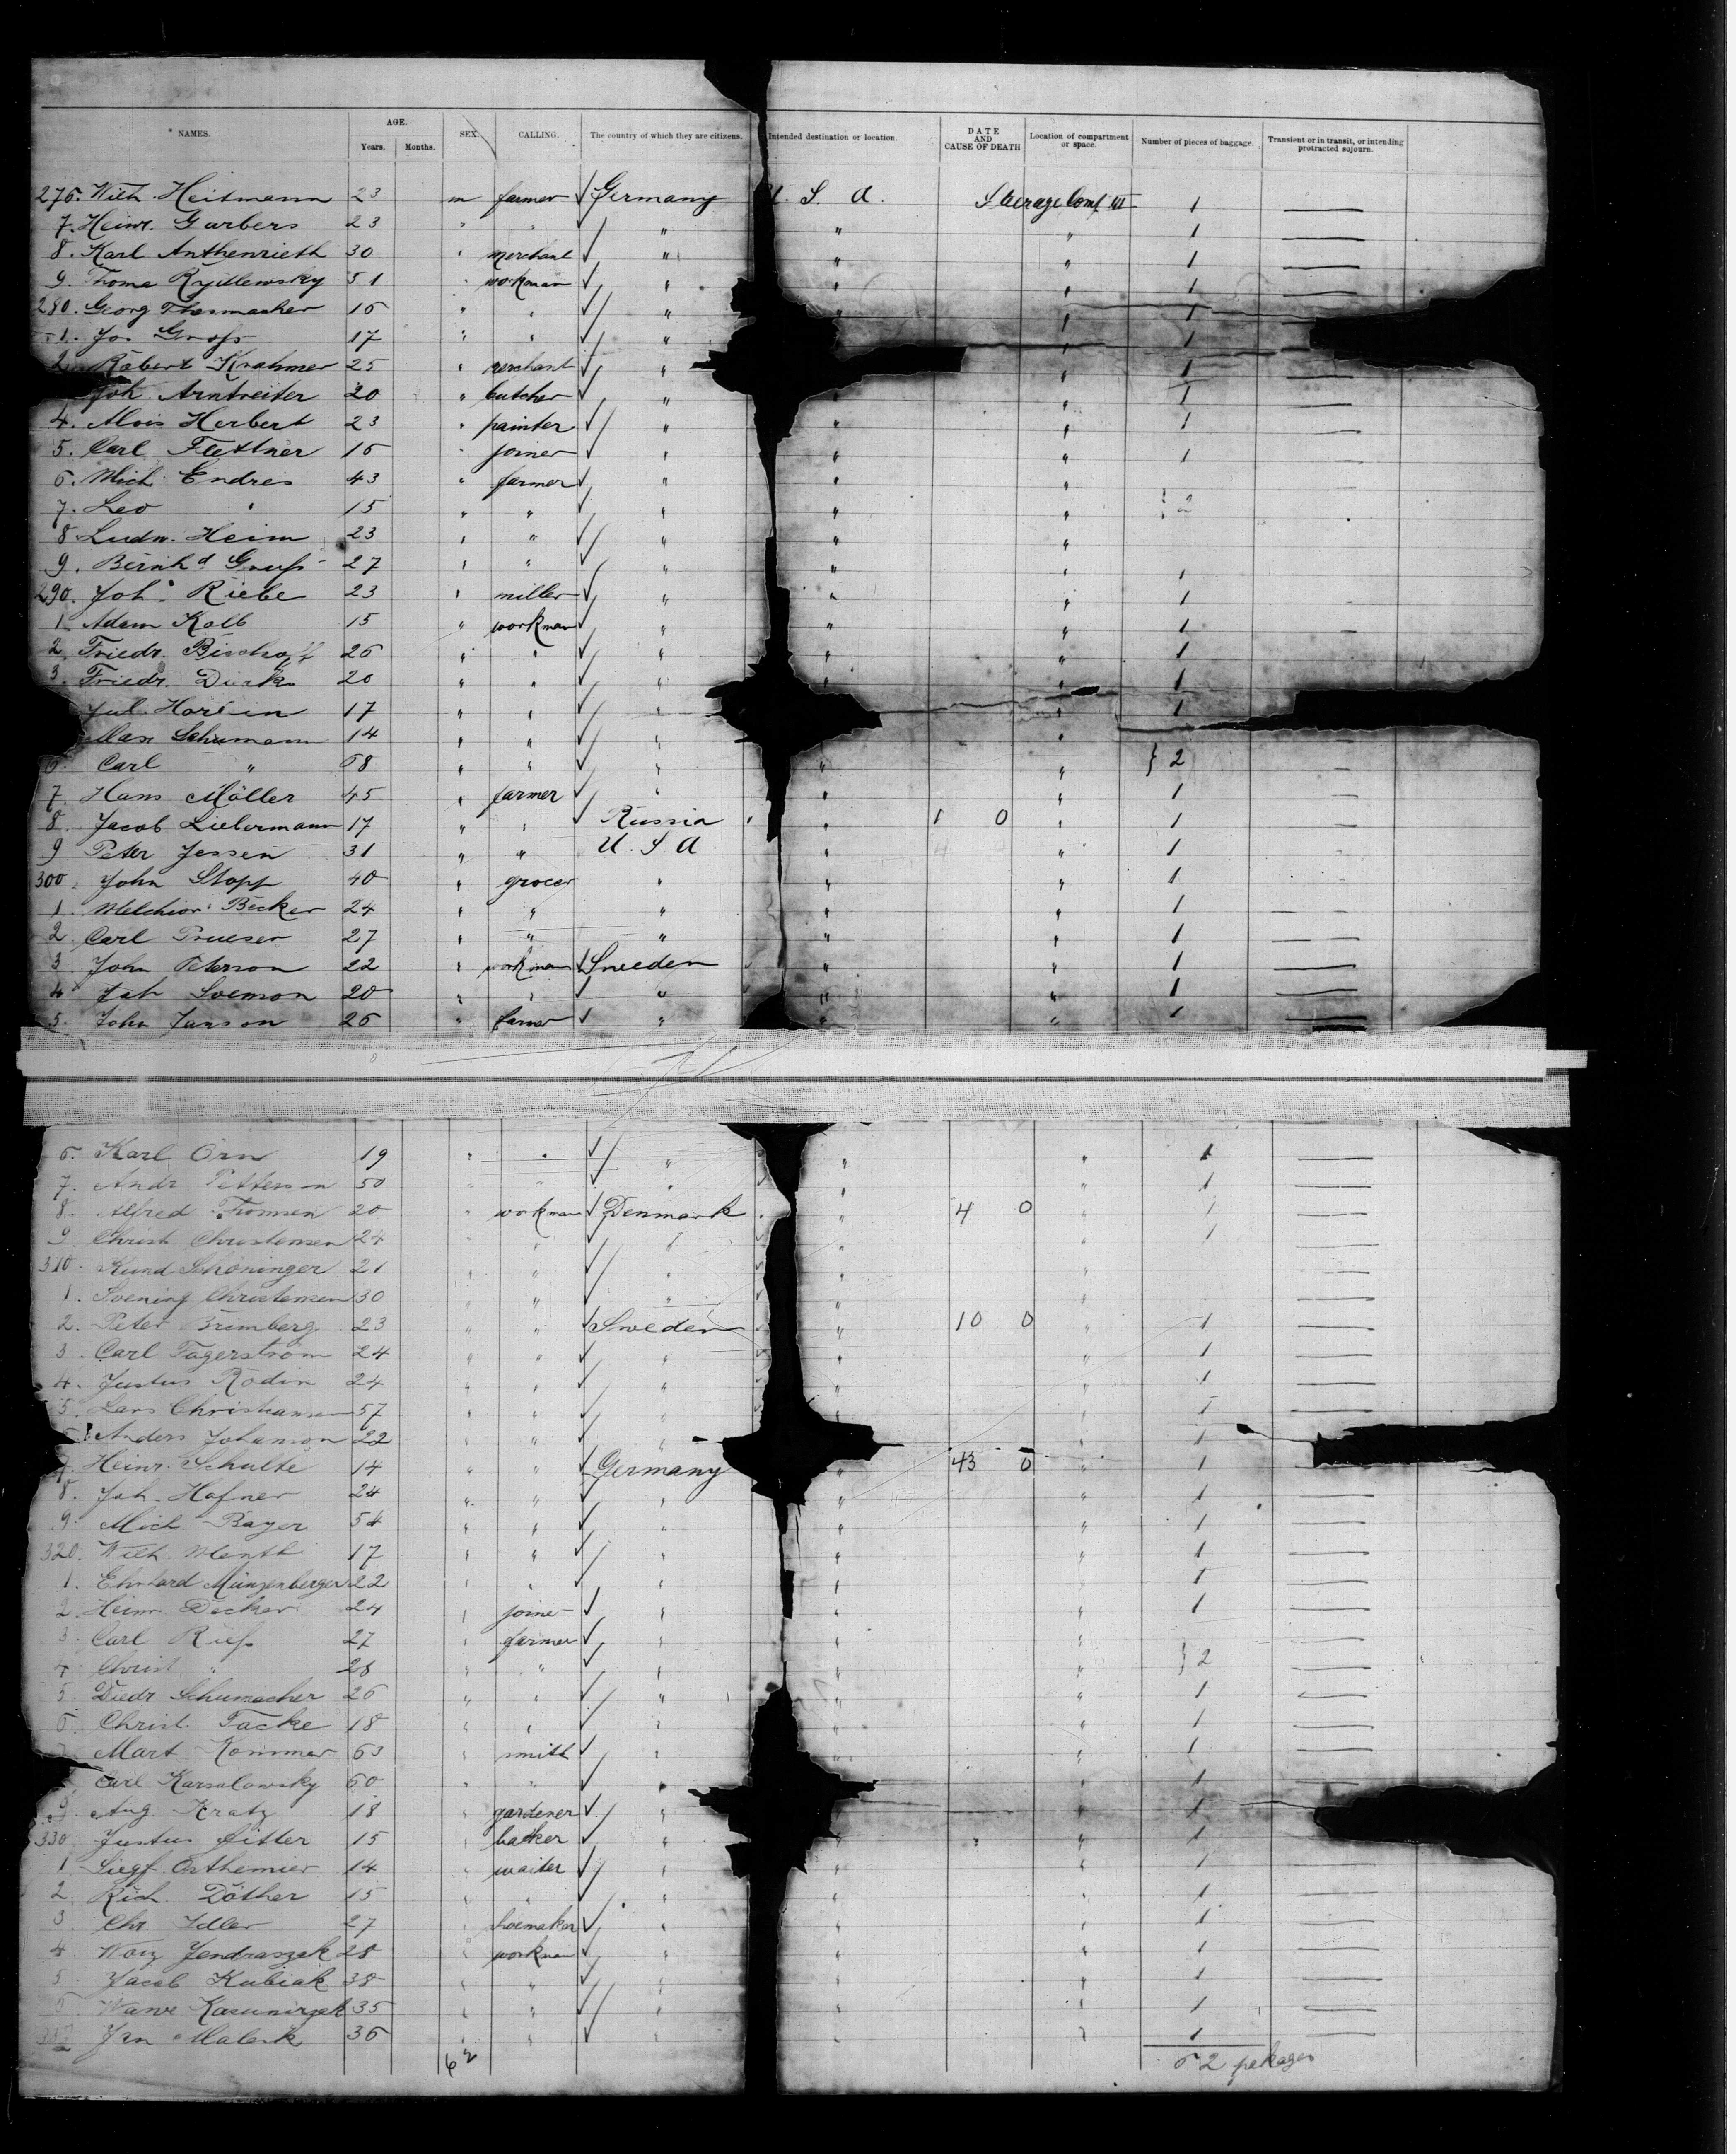 NAMES. AGE. SEX. CALLING. The country of which they are citizens. Intended destination or location. DATE AND CAUSE OF DEATH Location of compartment or space. Number of pieces of baggage. Transient or in transit, or intending protracted sojourn.
Years. Months.
276. Wilh. Heitmann 23 m farmer ✓ Germany U. S. A. Steerage Comp III 1 —
7. Heinr. Garbers 23 " " ✓ " " " 1 —
8. Karl Anthenrieth 30 " merchant ✓ " " " 1 —
9. Thoma Rydlewsky 51 " workman ✓ " " " 1 —
280. Georg 16 " " ✓ " " " 1
1. Jos Gross 17 " " ✓ " " 1
2. Robert Krahmer 25 " merchant ✓ " " 1 —
Joh. Arntreiter 20 " butcher ✓ " " " 1 —
4. Alois Herbert 23 " painter ✓ " " " 1 —
5. Carl Flettner 16 " joiner ✓ " " " 1
6. Mich. Endres 43 " farmer ✓ " " "
7. Leo " 15 " " ✓ " " " } 2
8 Ludw. Heim 23 " " ✓ " " "
9. Bernhd 27 " " ✓ " " " 1
290. Joh. Riebe 23 " miller ✓ " " " 1
1. Adam Kolb 15 " workman ✓ " " " 1
2. Friedr. Bischoff 26 " " ✓ " " " 1
3. Friedr. Dirks 20 " " ✓ " " " 1
Jul. 17 " " ✓ " " 1
Max Schumann 14 " " ✓ " "
6. Carl " 68 " " ✓ " " " } 2
7. Hans Möller 45 " farmer ✓ " " " 1
8. Jacob Liebermann 17 " " ✓ Russia " 1 0 " 1
9 Peter Jessen 31 " " U. S. A " " 1
300. John Stopp 40 " grocer " " " 1
1. Melchior Becker 24 " " " " " 1 —
2. Carl Prueser 27 " " " " " 1 —
3 John Peterson 22 " workman ✓ Sweden " " 1 —
4 Joh Svenson 20 " " ✓ " " " 1 —
5. John Janson 26 " farmer ✓ " " " 1 —
6. Karl Örn 19 " " ✓ " " " 1 —
7. Andr. Petterson 50 " " ✓ " " " 1 —
8. Alfred Thomsen 20 " workman ✓ Denmark " 4 0 " 1 —
9 Christ Christensen 24 " " ✓ " " " 1 —
310. Schöninger 21 " " ✓ " " " —
1. Christensen 30 " " ✓ " " " —
2. Peter Brimberg 23 " " ✓ Sweden " 10 0 " 1 —
3. Carl Fagerström 24 " " ✓ " " " 1 —
4. Justus Rodin 24 " " ✓ " " " 1 —
5. Lars Christiansen 57 " " ✓ " " " 1 —
Anders Johanson 22 " " ✓ " " 1
7. Heinr. Schulte 14 " " ✓ Germany " 43 0 " 1
8. Joh. Hafner 24 " " ✓ " " " 1 —
9. Mich. Bayer 54 " " ✓ " " " 1 —
320. Wilh. Menth 17 " " ✓ " " " 1 —
1. Ehrhard Münzenberger 22 " " ✓ " " " 1 —
2. Heinr. Decker 24 " joiner ✓ " " " 1 —
3. Carl 27 " farmer ✓ " " "
4. Christ " 26 " " ✓ " " " } 2 —
5. Diedr Schumacher 26 " " ✓ " " " 1 —
6. Christ. Tacke 18 " " ✓ " " " 1 —
Mart Kommer 63 " smith ✓ " " " 1 —
Carl Karsalowsky 60 " " ✓ " " 1
9 Aug. Kratz 18 " gardener ✓ " " 1
330. Justus 15 " baker ✓ " " " 1
1 Siegf. 14 " waiter ✓ " " " 1 —
2 Rich. Döther 15 " " ✓ " " " 1 —
3 Chr Idler 27 " shoemaker ✓ " " " 1 —
4 Woiz Jendraszak 28 " workman ✓ " " " 1 —
5. Jacob Kubiak 38 " " ✓ " " " 1 —
6 35 " " ✓ " " " 1 —
337 Jan 36 " " ✓ " " " 1 —
62 62 pakages